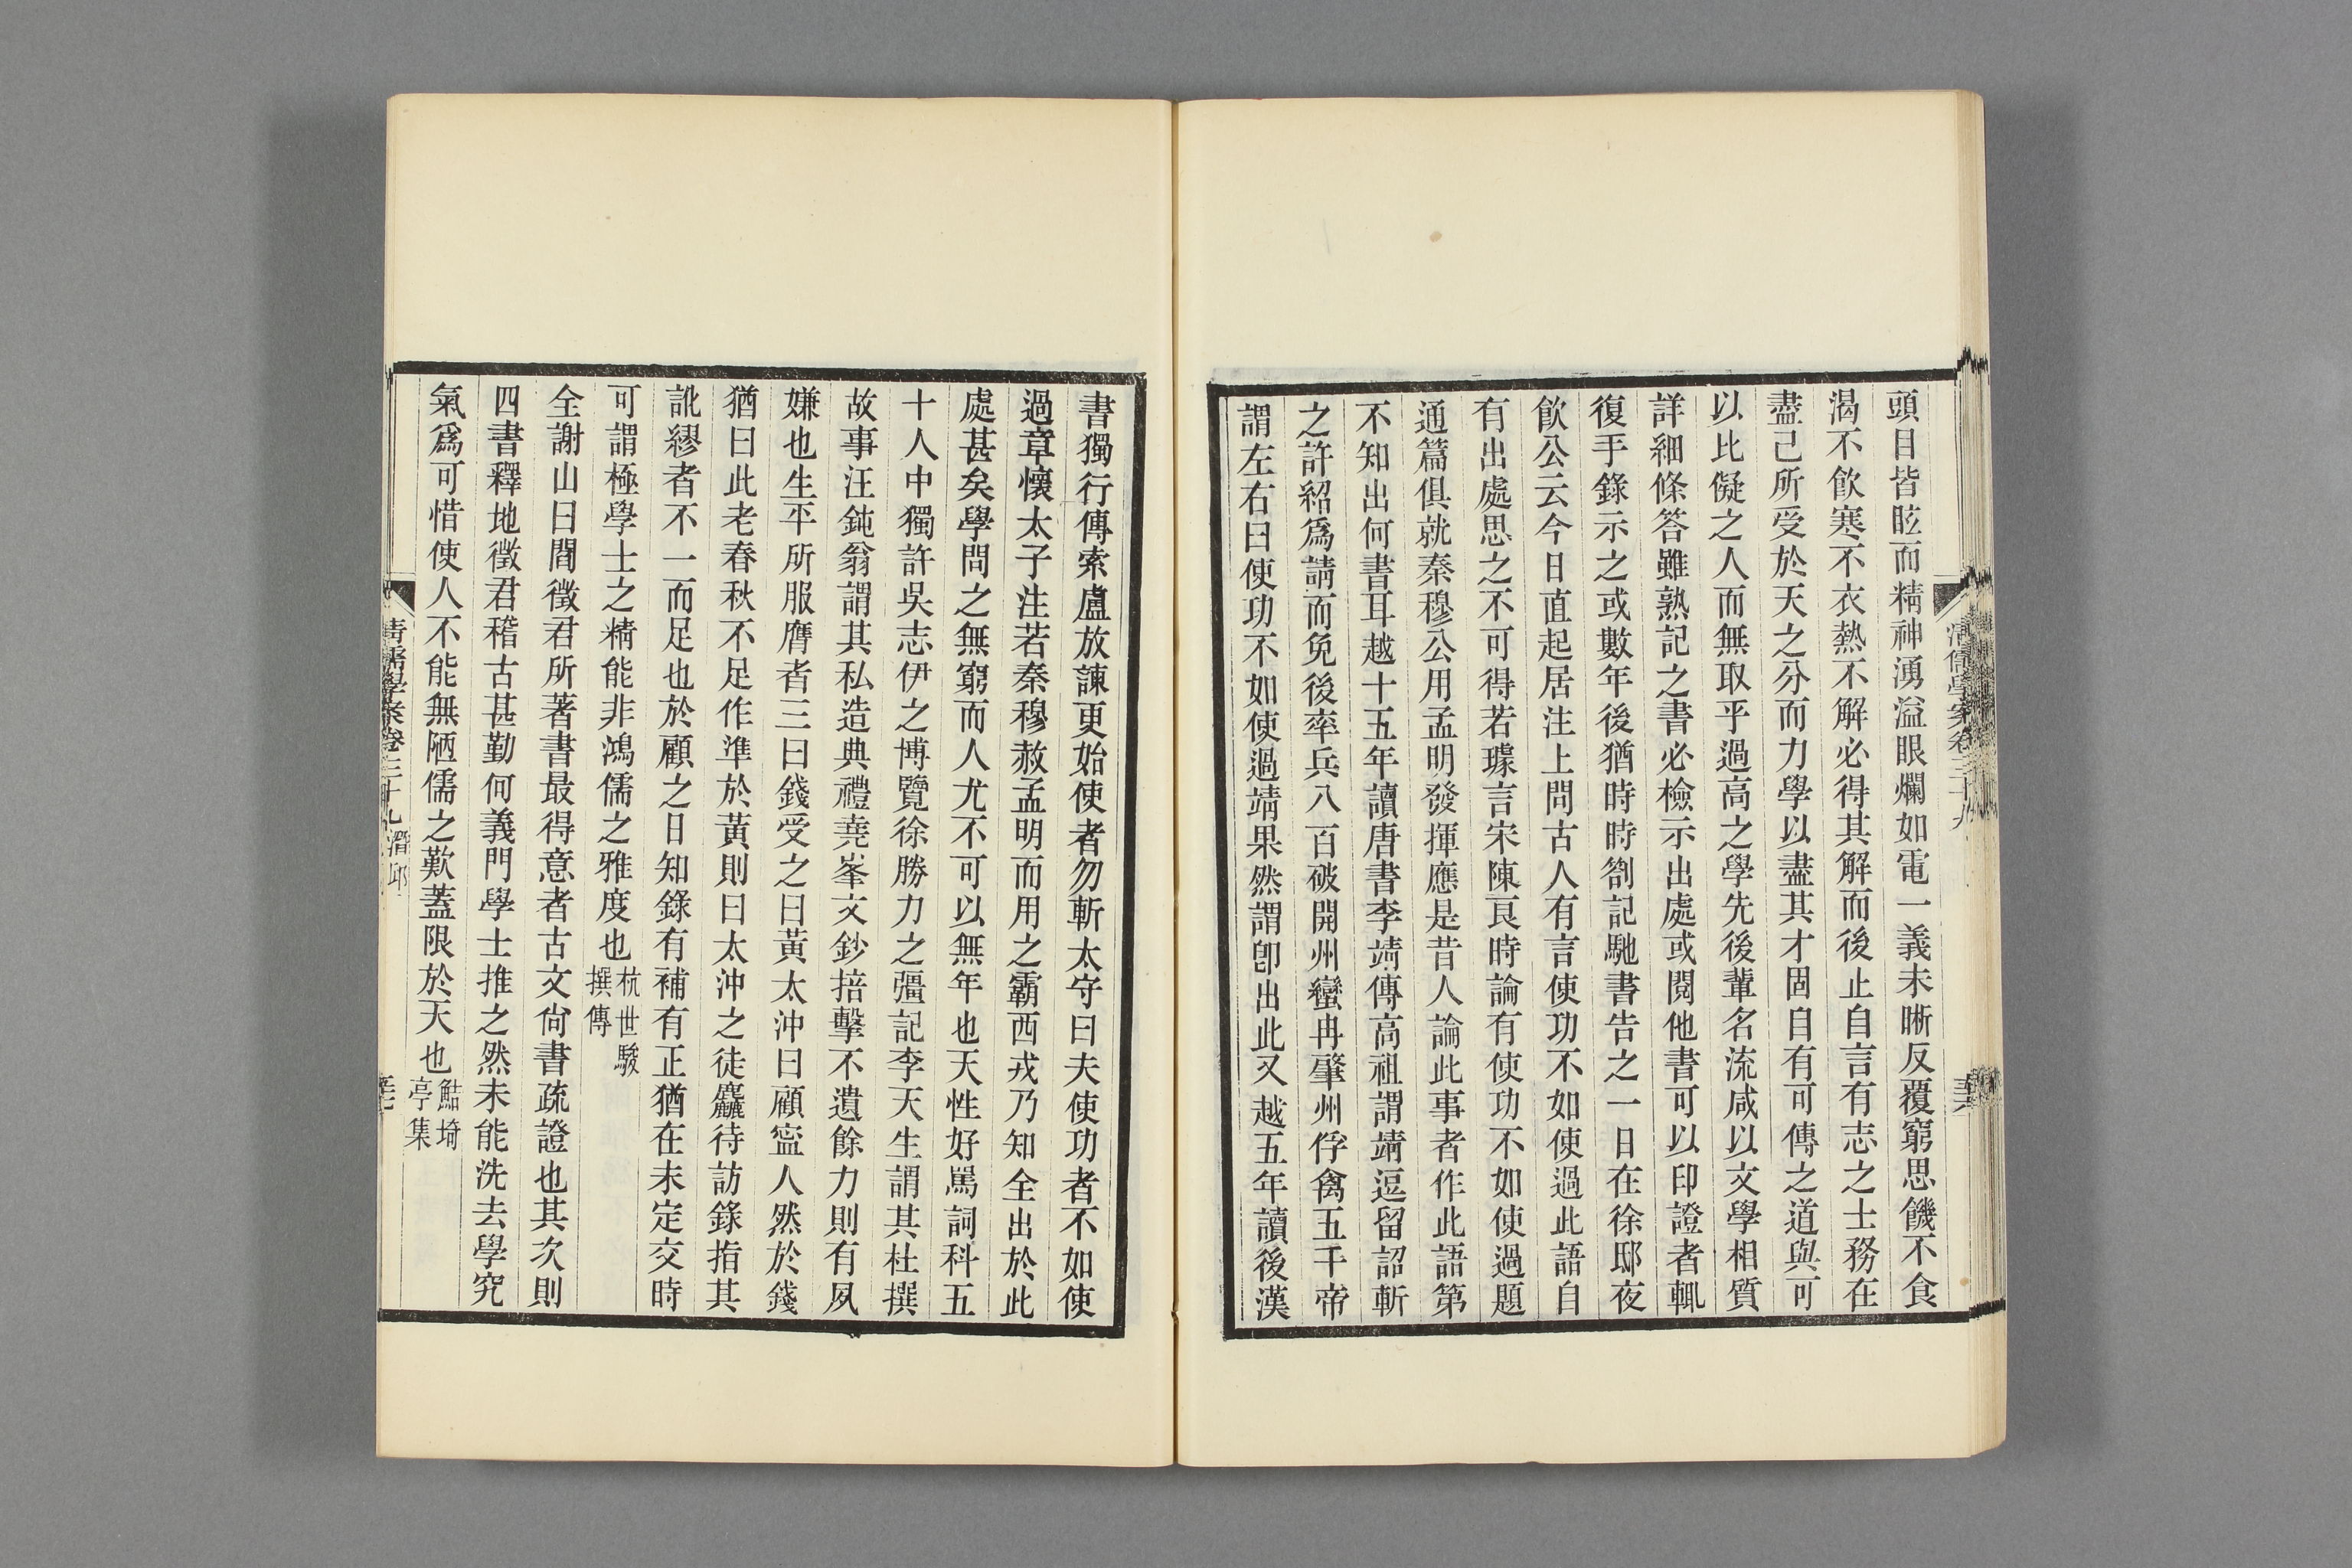 頭目皆眩而精神湧溢眼爛如電一義未晰反覆窮思饑不食
渴不飲寒不衣熱不解必得其解而後止自言有志之士務在
盡己所受於天之分而力學以盡其才固自有可傳之道與可
以比儗之人而無取乎過高之學先後輩名流咸以文學相質
詳細條答雖熟記之書必檢示出處或閱他書可以印證者輒
復手錄示之或數年後猶時時劄記馳書告之一日在徐邸夜
飲公云今日直起居注上問古人有言使功不如使過此語自
有出處思之不可得若璩言宋陳良時論有使功不如使過題
通篇俱就秦穆公用孟明發揮應是昔人論此事者作此語第
不知出何書耳越十五年讀唐書李靖傳高祖謂靖逗留詔斬
之許紹爲請而免後率兵八百破開州蠻冉肇州俘禽五千帝
謂左右曰使功不如使過靖果然謂卽出此又越五年讀後漢
清儒學案卷三十九
書獨行傳索盧放諫更始使者勿斬太守曰夫使功者不如使
過章懷太子注若秦穆赦孟明而用之霸西戎乃知全出於此
處甚矣學問之無窮而人尤不可以無年也天性好罵詞科五
十人中獨許吳志伊之博覽徐勝力之彊記李天生謂其杜撰
故事汪鈍翁謂其私造典禮堯峯文鈔掊擊不遺餘力則有夙
嫌也生平所服膺者三曰錢受之曰黃太沖曰顧寧人然於錢
猶曰此老春秋不足作準於黃則曰太沖之徒麤待訪錄指其
訛繆者不一而足也於顧之日知錄有補有正猶在未定交時
可謂極學士之精能非鴻儒之雅度也杭世駿
撰傳
全謝山曰閻徵君所著書最得意者古文尙書疏證也其次則
四書釋地徵君稽古甚勤何義門學士推之然未能洗去學究
氣爲可惜使人不能無陋儒之歎蓋限於天也鮚埼
亭集
清儒學案卷三十九 潛邱